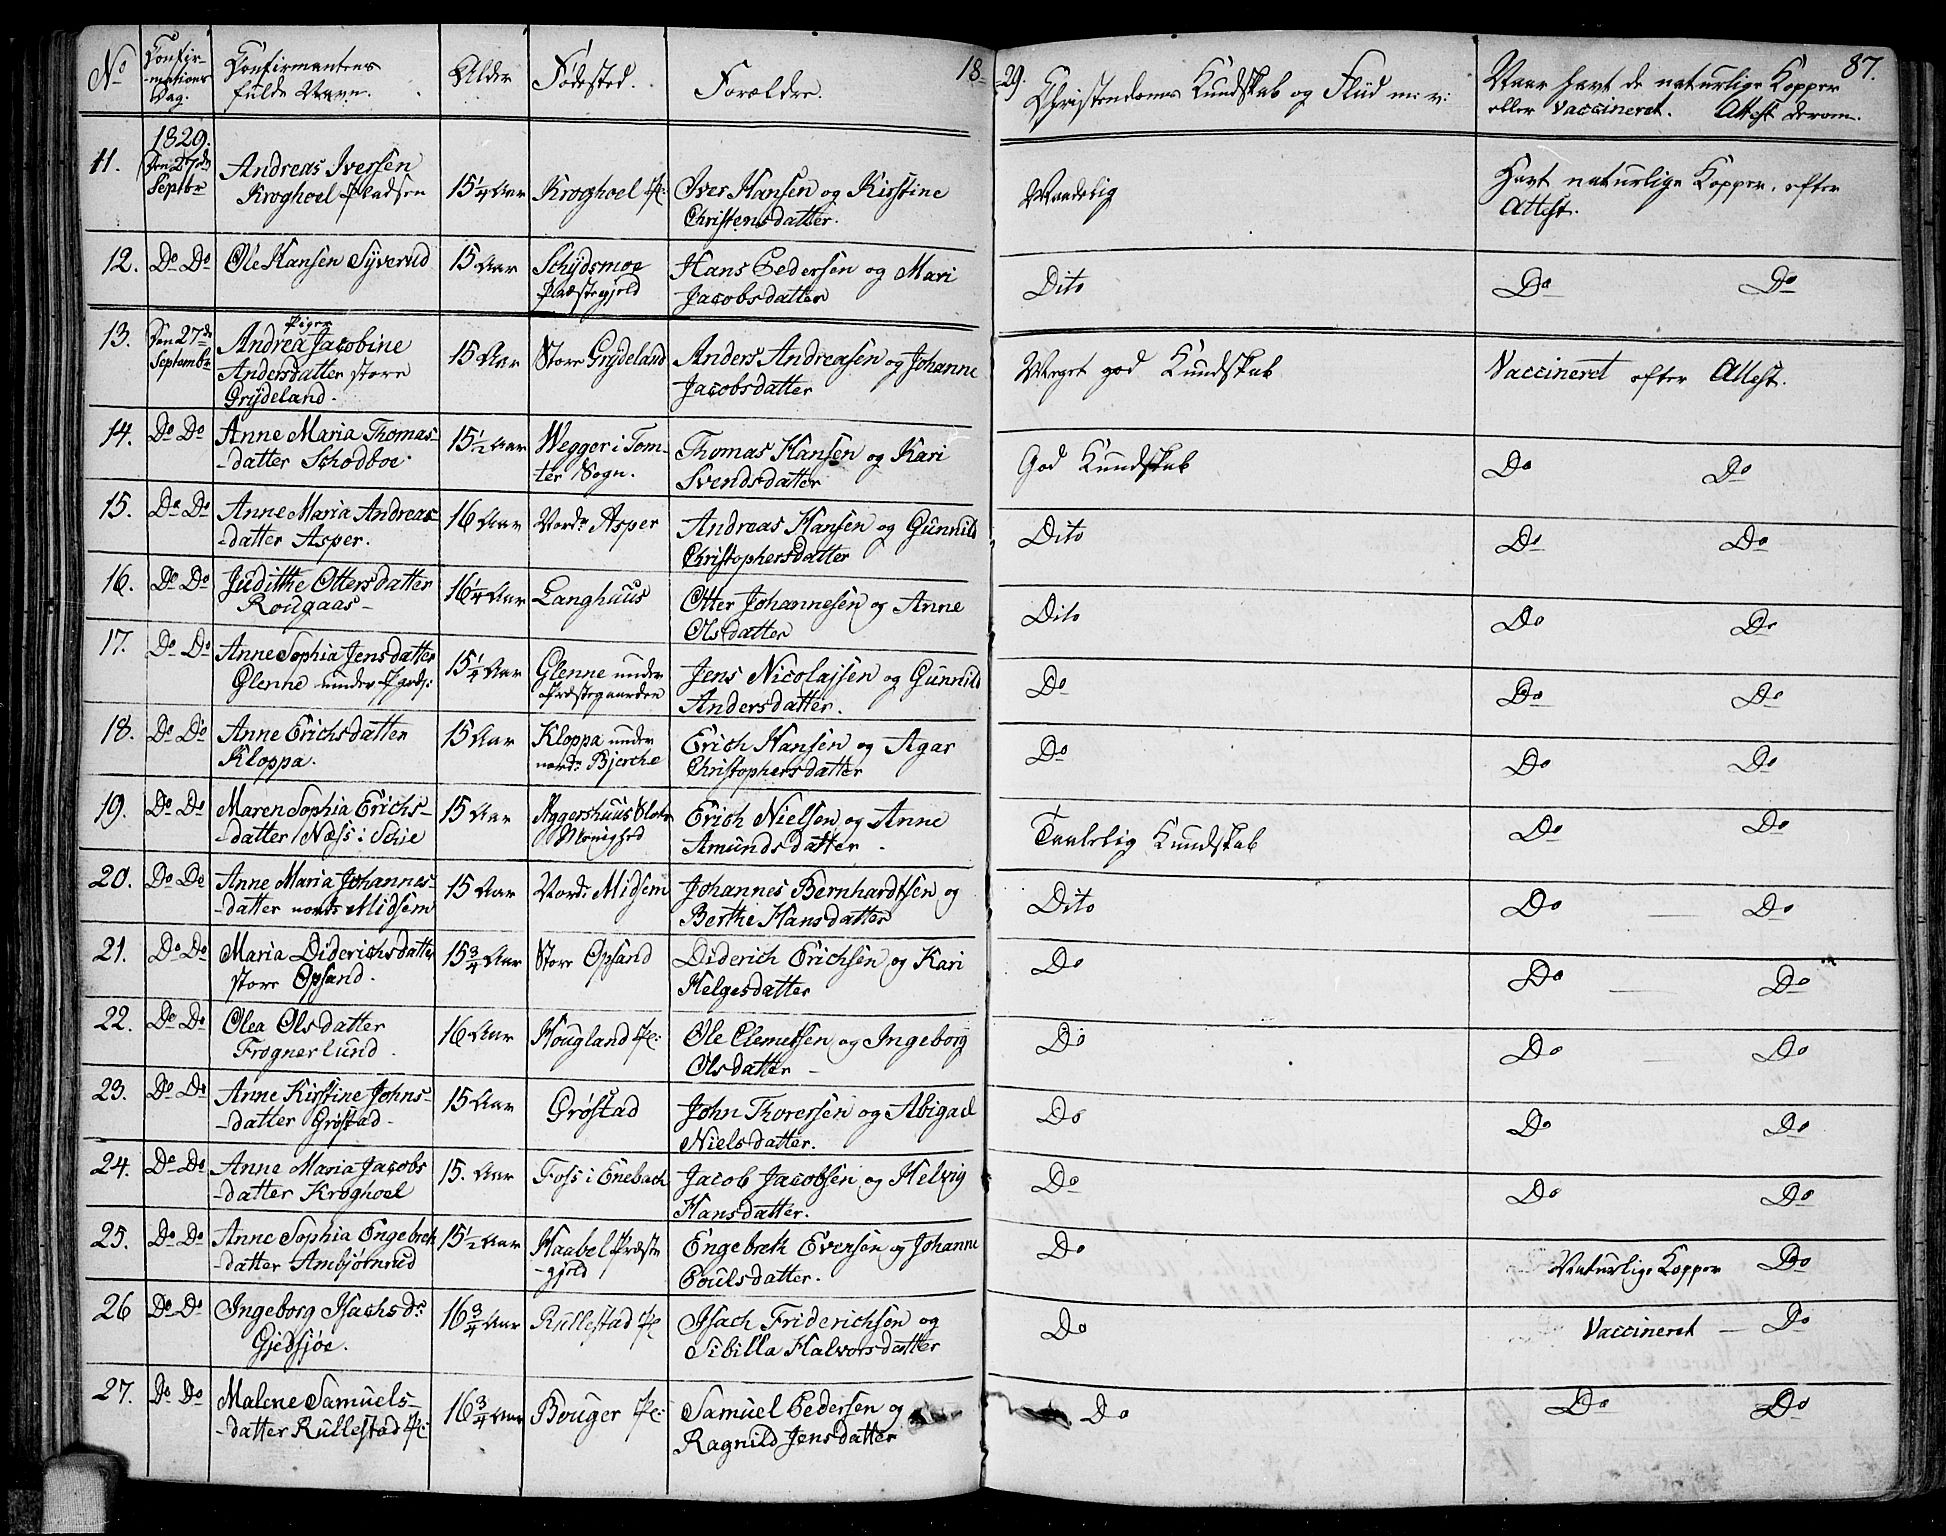 18-29.
87.
No
Confir-
-mations
Dag.
Confirmantens
fulde Navn.
Alder
Fødested.
Forældre.
Christendoms Kundskab og Fliid m: v:
Naar havt de naturlige Kopper
eller Vaccineret. Attest derom.
11.
1829.
Den 27de
Septbr
Andreas Iversen
Kroghoel Pladsen
15 1/4 Aar
Kroghoel Pl:
Iver Hansen og Kirstine
Christensdatter.
Maadelig
Havt naturlige Kopper, efter
Attest.
12.
Do Do
Ole Hansen Syverud
15 Aar
Schydsmoe
Præstegjeld
Hans Pedersen og Mari
Jacobsdatter
Dito
Do Do
13.
Den 27de
Septembr
Piger
Andrea Jacobine
Andersdatter store
Grydeland.
15 Aar
Store Grydeland
Anders Andreasen og Johanne
Jacobsdatter
Meget god Kundskab
Vaccineret efter Attest.
14.
Do Do
Anne Maria Thomas-
-datter Schodboe
15 1/2 Aar
Wegger i Tom-
ter Sogn.
Thomas Hansen og Kari
Svendsdatter
God Kundskab
Do Do
15.
Do Do
Anne Maria Andreas-
-datter Asper.
16 Aar
Nordr Asper
Andreas Hansen og Gunnild
Christophersdatter
Dito
Do Do
16.
Do Do
Judithe Ottersdatter
Rougaas-
16 1/4 Aar
Langhuus
Otter Johannesen og Anne
Olsdatter
Dito
Do Do
17.
Do Do
Anne Sophia Jensdatter
Glenne under
15 1/4 Aar
Glenne under
Præstegaarden
Jens Nicolajsen og Gunnild
Andersdatter.
Do
Do Do
18.
Do Do
Anne Erichsdatter
Kloppa.
15 Aar
Kloppa under
nord: Bjerche
Erich Hansen og Agar
Christophersdatter
Do
Do Do
19.
Do Do
Maren Sophia Erichs-
-datter Næss i Schie
15 Aar
Aggershuus Slots
Menighed
Erich Nielsen og Anne
Amundsdatter -
Taalelig Kundskab
Do Do
20.
Do Do
Anne Maria Johannes-
-datter nordr Midsem
15 Aar
Nord: Midsem
Johannes Bernhardtsen og
Berthe Hansdatter
Dito
Do Do
21.
Do Do
Maria Diderichsdatter
store Opsand.
15 3/4 Aar
Store Opsand
Diderich Erichsen og Kari
Helgesdatter
Do
Do Do
22.
Do Do
Olea Olsdatter
Frognerlund.
16 Aar
Hougland Pl:
Ole Clemetsen og Ingeborg
Olsdatter -
Do
Do Do
23.
Do Do
Anne Kirstine Johns-
-datter Grøstad-
15 Aar
Grøstad
John Thoresen og Abigael
Nielsdatter.
Do
Do Do
24.
Do Do
Anne Maria Jacobs
-datter Kroghoel
15. Aar
Foss i Enebach
Jacob Jacobsen og Helvig
Hansdatter.
Do
Do Do
25.
Do Do
Anne Sophia Engebret
-datter Ambjørnrud
15 1/2 Aar
Haabel Præste
-gjeld
Engebreth Evensen og Johanne
Poulsdatter.
Do
Naturlige Kopper Do
26
Do Do
Ingeborg Isachsdr
Gjedsjøe.
16 3/4 Aar
Rullestad Pl
Isach Friderichsen og
Sibilla Halvorsdatter
Do
Vaccineret - Do
27.
Do Do
Malene Samuels-
-datter Rullestad Pl:
16 3/4 Aar
Bouger Pl:
Samuel Pedersen og
Ragnild Jensdatter
Do
Do Do